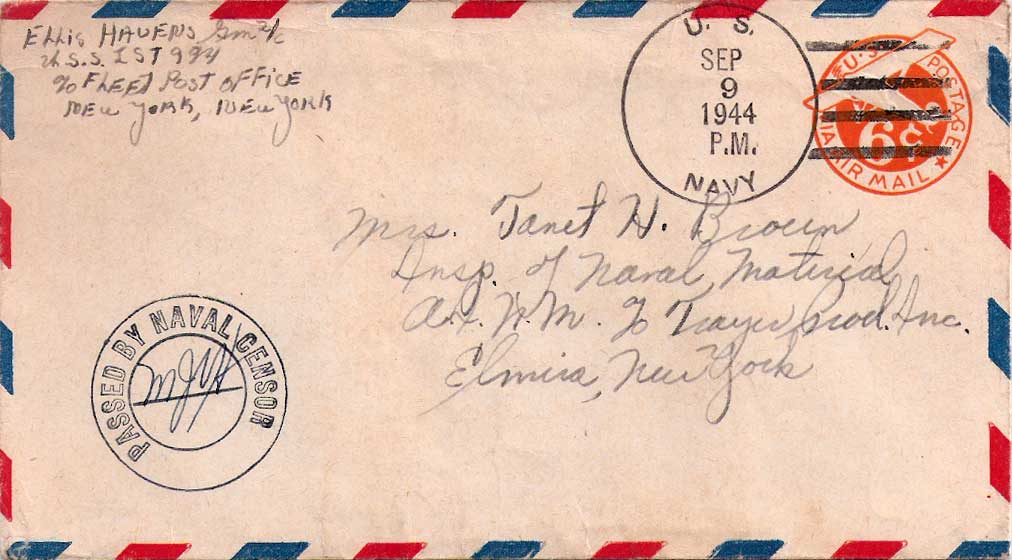 Ellis Havens Gm2/c
U.S.S. LST 994
℅ Fleet Post Office
New York, New York
U. S.
SEP
9
1944
P.M.
NAVY
U.S. POSTAGE
6¢
VIA AIR MAIL
Mrs. Janet H. Brown
Insp. of Naval Material
℅ Thayer Prod. Inc.
Elmira, New York
PASSED BY NAVAL CENSOR